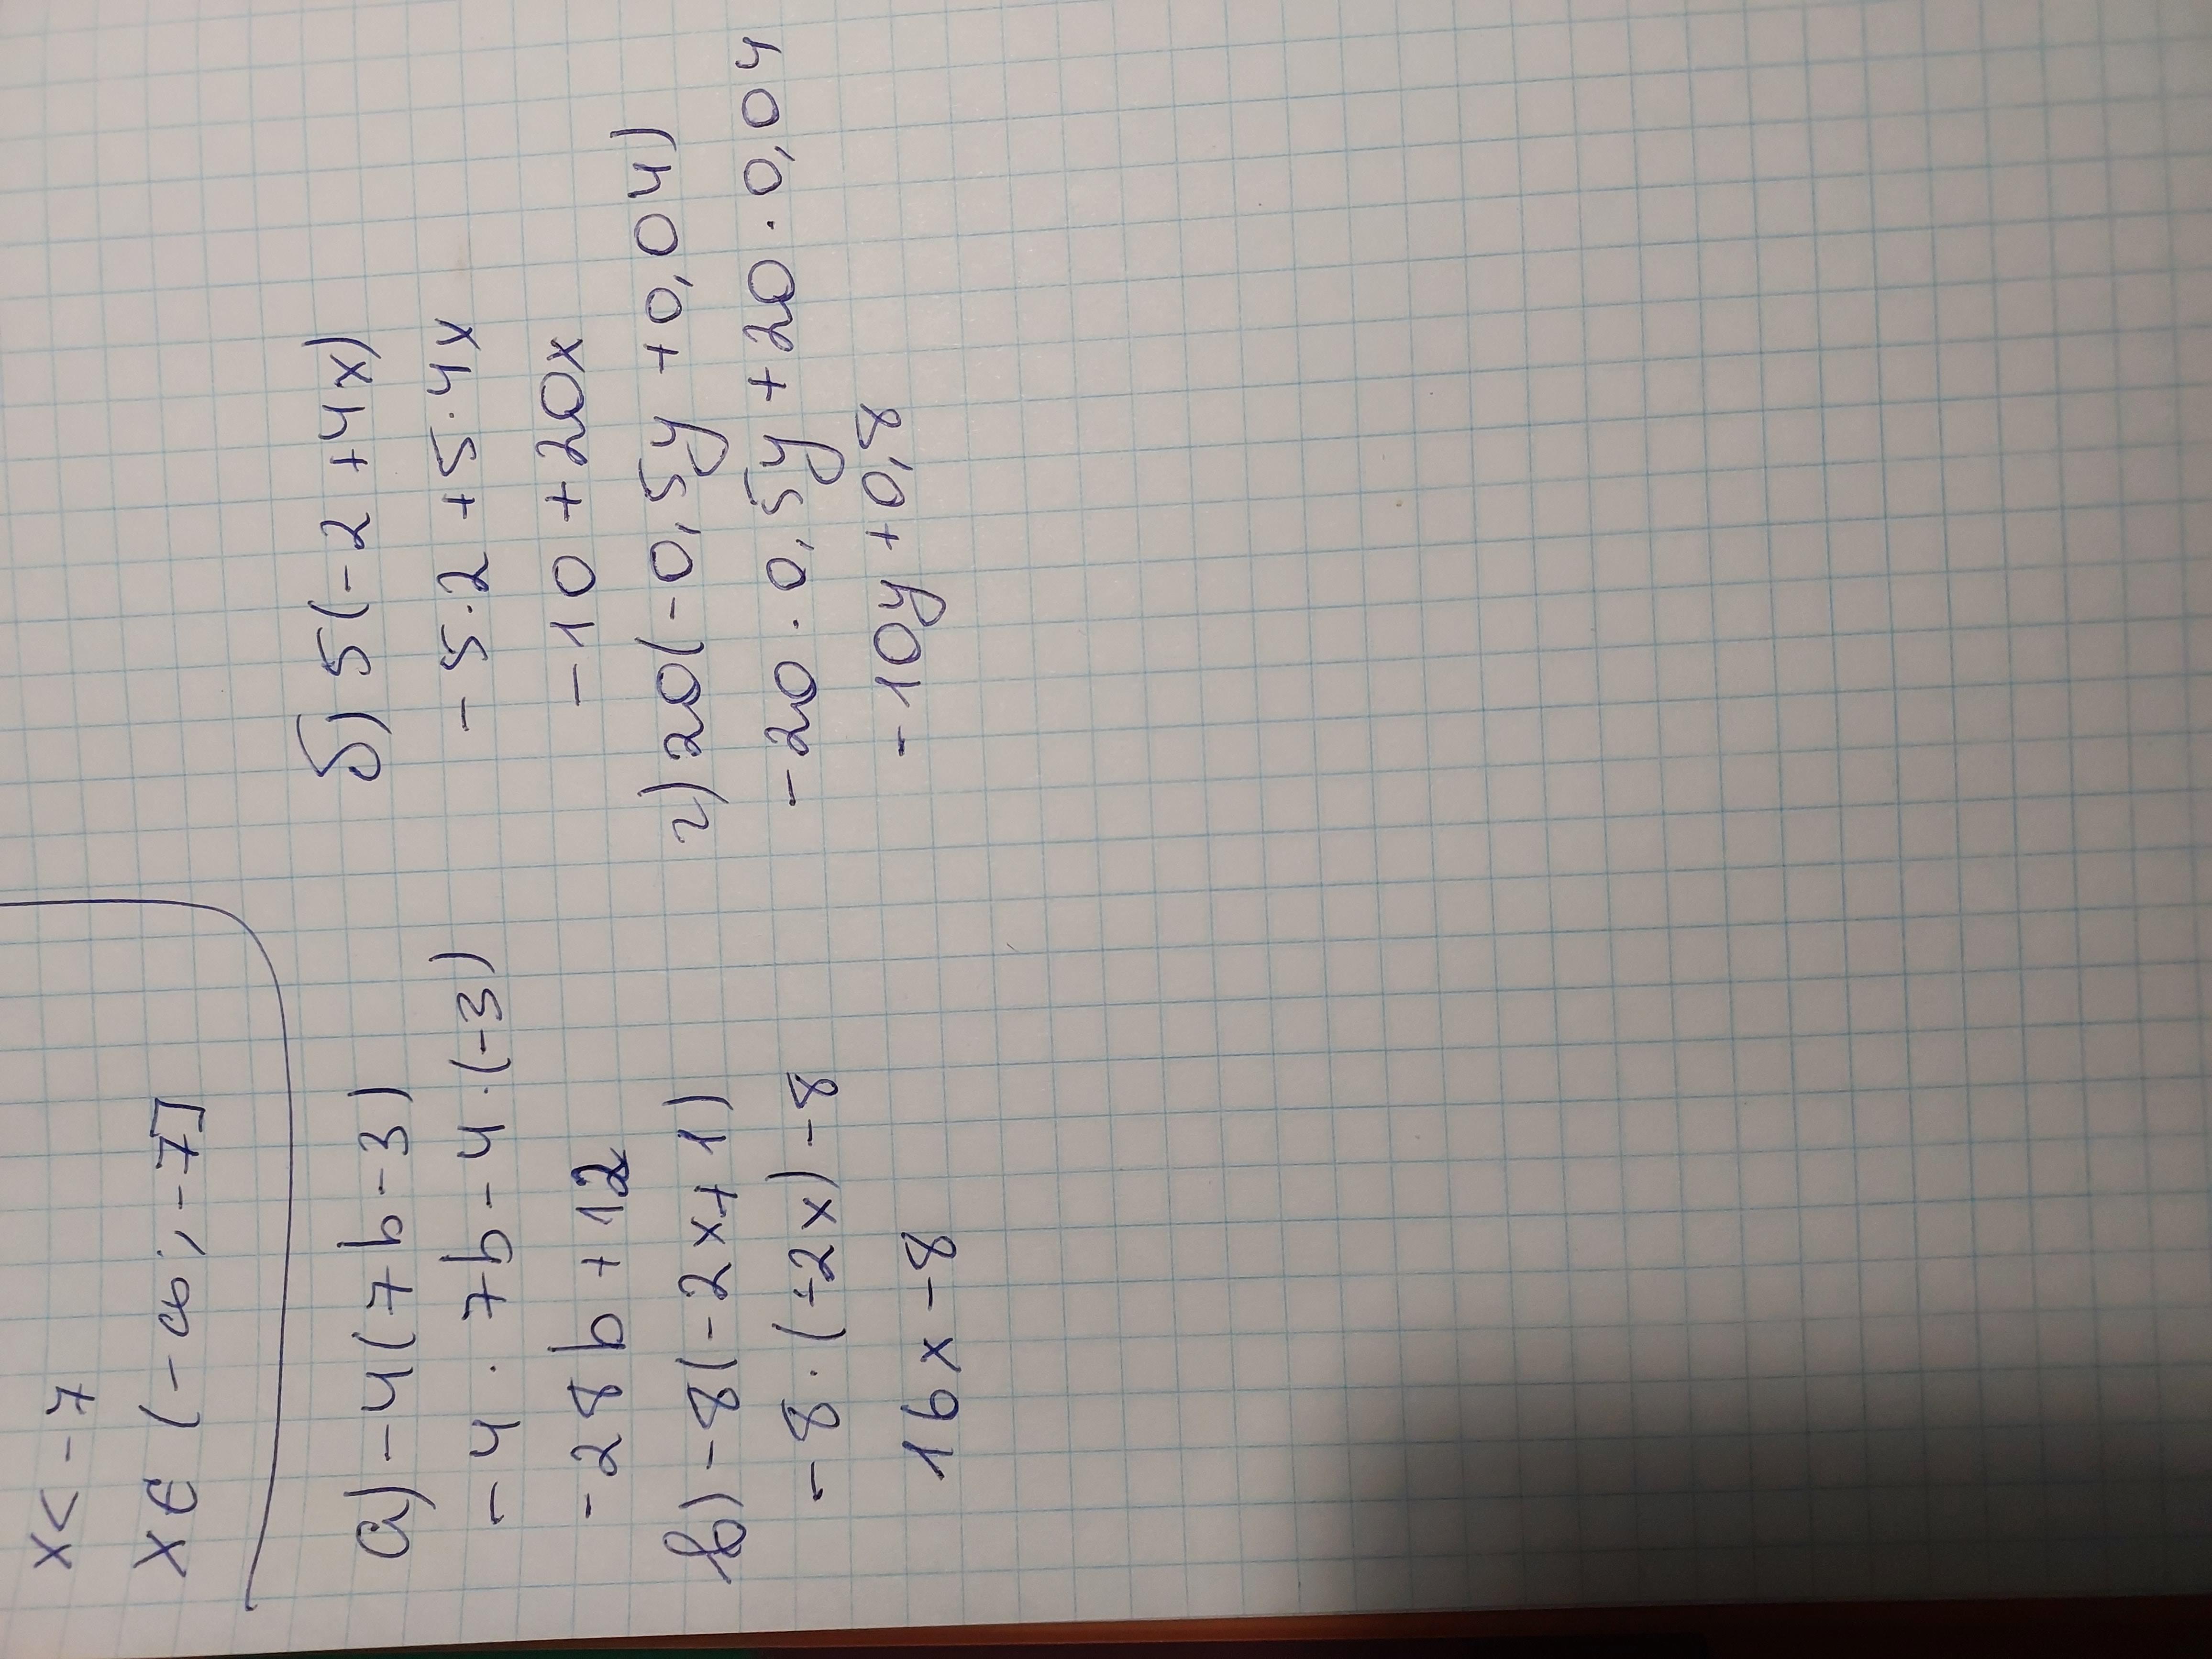 x < -7
x ∈ (-∞; -7]
а) -4(7b-3)
-4 · 7b - 4 · (-3)
-28b + 12
в) -8(-2x+1)
-8 · (-2x) - 8
16x - 8
б) 5(-2+4x)
-5·2 + 5·4x
-10 + 20x
г) 20(-0,5y + 0,04)
-20 · 0,5y + 20 · 0,04
-10y + 0,8